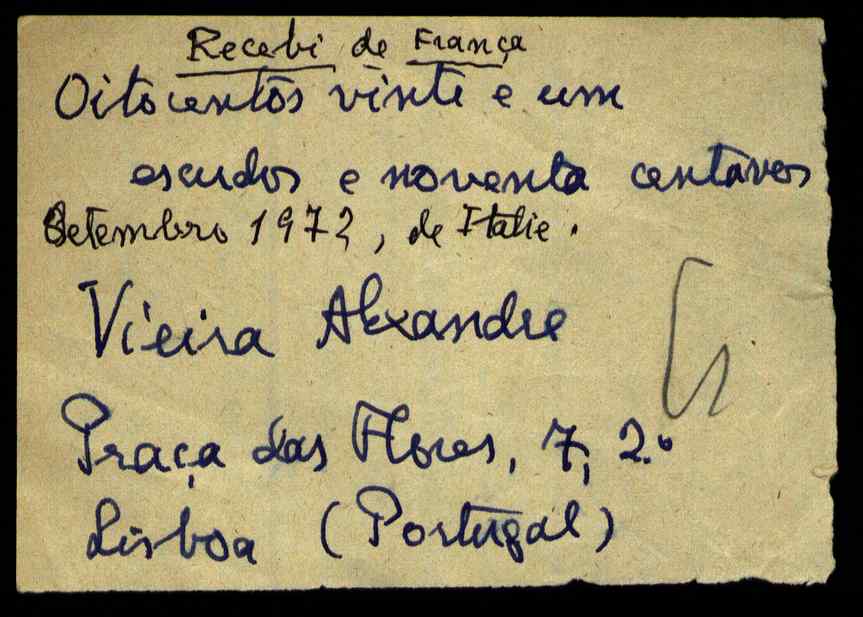 Recebi de França
Oitocentos vinte e um
escudos e noventa centavos
Setembro 1972, de Italie.
Vieira Alexandre
Praça das Flores, 7, 2.º
Lisboa (Portugal)